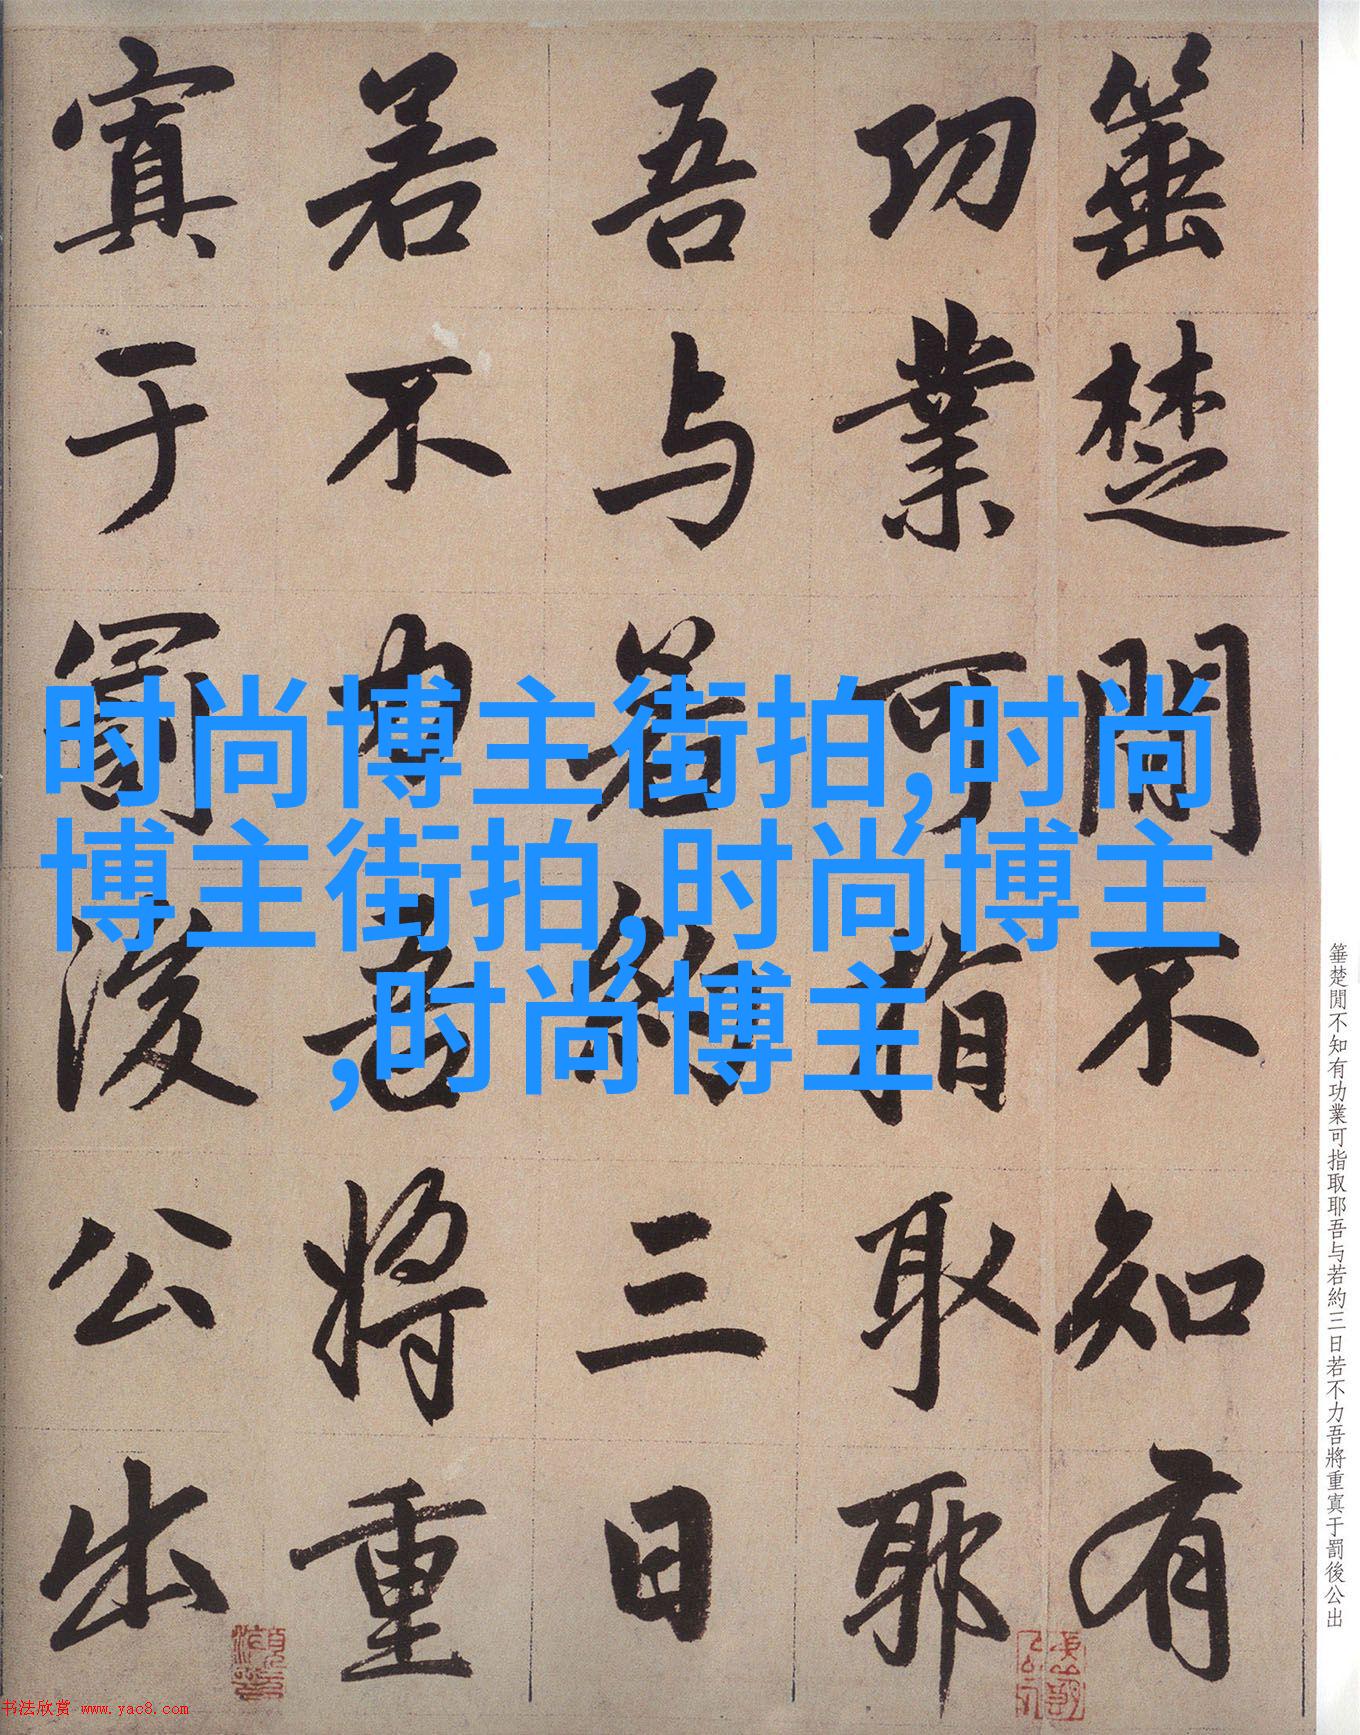 箠楚閒不知有
功業可指取耶
吾与若約三日
若不力吾將重
寘于罰後公出
时尚博主街拍,时尚
博主街拍,时尚博主
,时尚博主
箠楚閒不知有功業可指取耶吾与若約三日若不力吾將重寘于罰後公出
书法欣赏 www.yac8.com